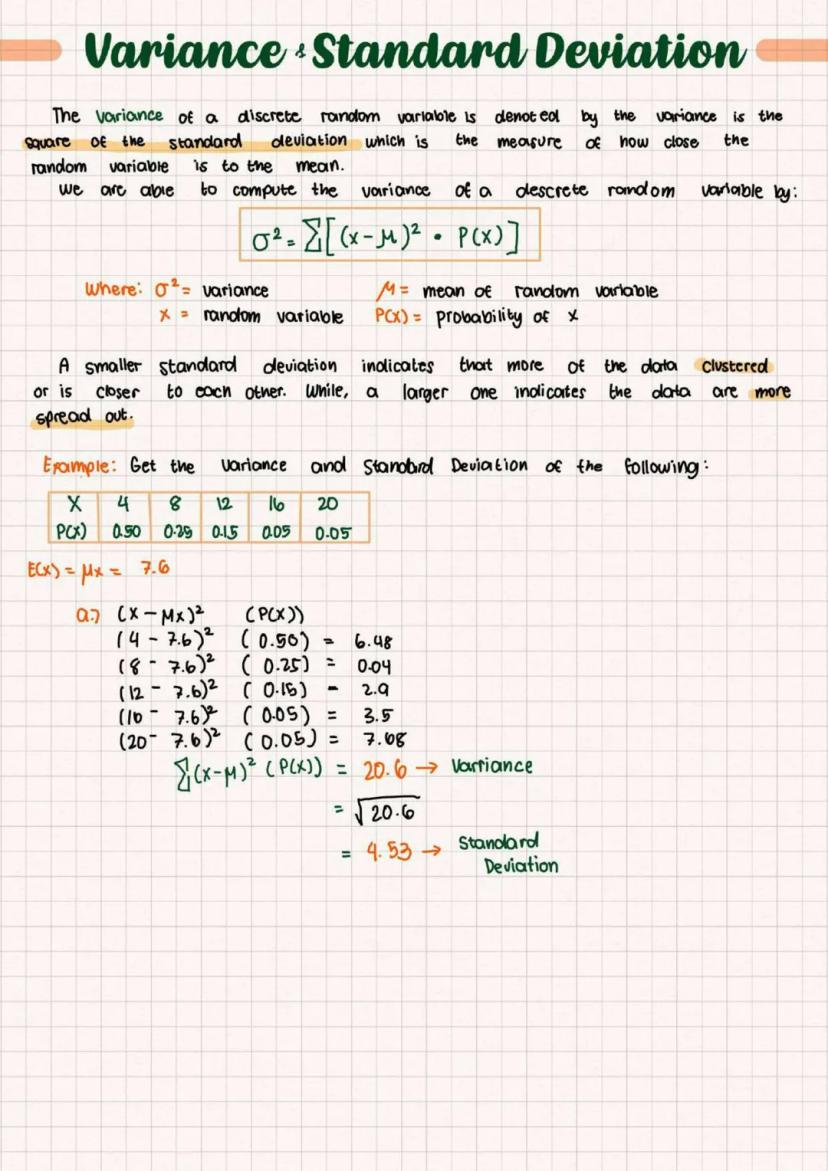 Variance & Standard Deviation
The variance of a discrete random variable is denoted by the variance is the
square of the standard deviation which is the measure of how close the
random variable is to the mean.
We are able to compute the variance of a descrete random variable by:
σ² = ∑[(x-μ)² • P(x)]
Where: σ² = variance μ = mean of random variable
x = random variable P(x) = probability of x
A smaller standard deviation indicates that more of the data clustered
or is closer to each other. While, a larger one indicates the data are more
spread out.
Example: Get the Variance and Standard Deviation of the following:
X 4 8 12 16 20
P(x) 0.50 0.25 0.15 0.05 0.05
E(x) = μx = 7.6
a.) (x - μx)² (P(x))
(4 - 7.6)² (0.50) = 6.48
(8 - 7.6)² (0.25) = 0.04
(12 - 7.6)² (0.15) = 2.9
(16 - 7.6)² (0.05) = 3.5
(20 - 7.6)² (0.05) = 7.68
∑(x-μ)² (P(x)) = 20.6 → Variance
= √20.6
= 4.53 → Standard
Deviation